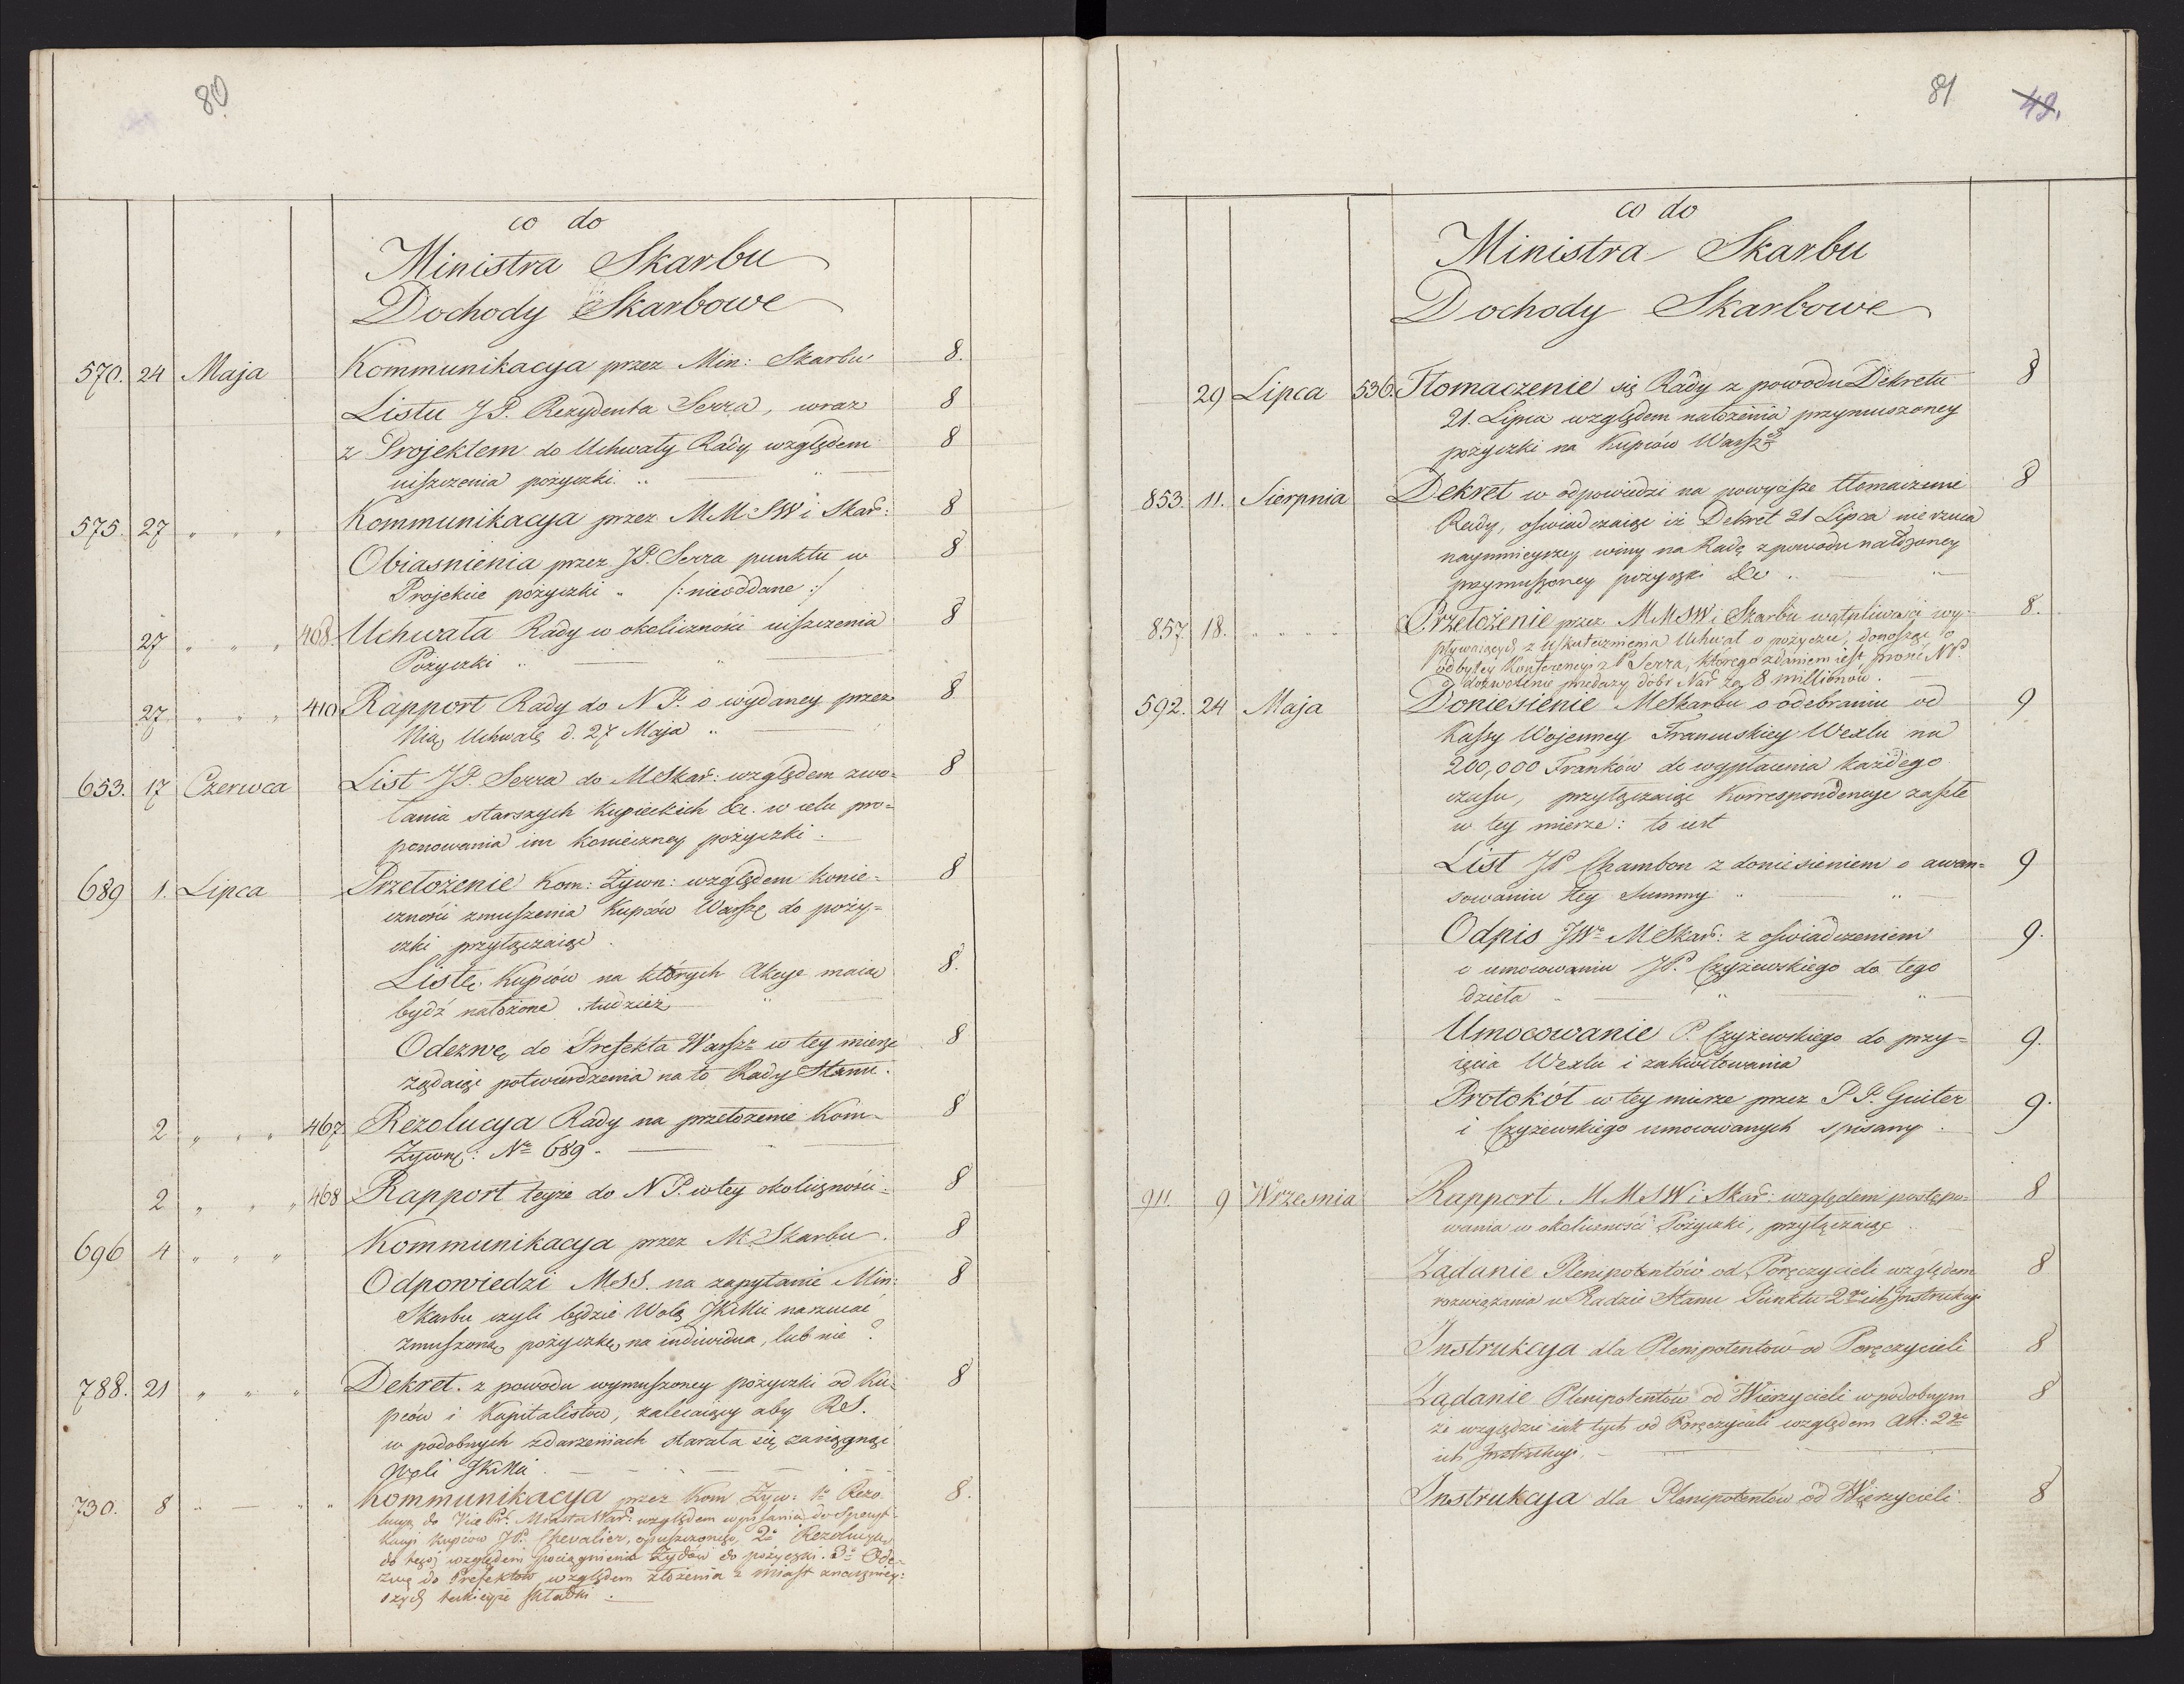 80
co do
Ministra Skarbu
Dochody Skarbowe
570. 24 Maja Kommunikacya przez Min: Skarbu 8.
Listu JP. Rezydenta Serra, wraz 8
z Projektem do Uchwały Rady względem 8
uiszczenia pożyczki. „ „
575. 27 „ „ „ Kommunikacya przez MMSW i Skar: 8
Obiasnienia przez JP. Serra punktu w 8
Projekcie pożyczki „ /: nieoddane :/
27 „ „ „ 408. Uchwała Rady w okoliczności uiszczenia 8
Pożyczki „ „
27 „ „ „ 410 Rapport Rady do N P. o wydaney przez 8
Nią Uchwałę d. 27 Maja „
653. 17 Czerwca List JP. Serra do MSkar: względem zwo=
8
łania starszych Kupieckich &c. w celu pro=
ponowania im konieczney pożyczki.
689 1. Lipca Przełożenie Kom: Żywn: względem konie= 8
czności zmuszenia Kupców Warsz: do poży=
czki przyłączaiąc.
Listę Kupców na których Akcye maią 8.
bydź nałożone tudzież „
Odezwę do Prefekta Warsz: w tey mierze 8
żądaiąc potwierdzenia na to Rady Stanu.
2 „ „ „ 467 Rezolucya Rady na przełożenie Kom= 8
Żywn: No 689.
2 „ „ „ 468 Rapport teyże do N P. w tey okoliczności. 8
696 4 „ „ „ Kommunikacya przez M. Skarbu. 8
Odpowiedzi MSS. na zapytanie Min: 8
Skarbu czyli będzie Wolą JKMci narzucać
zmuszoną pożyczkę na indiwidua, lub nie?
788. 21 „ „ „ Dekret. z powodu wymuszoney pożyczki od Ku= 8
pców i Kapitalistów, zalecaiący aby RS.
w podobnych zdarzeniach starała się zasięgnąć
Woli JKMci.
730. 8 „ „ „ Kommunikacya przez Kom Żyw: 1o Rezo= 8.
lucyą do Vice Pr. Miasta War: względem wpisania do Specyfi=
kacyi kupców JP. Chevalier, opuszczonego, 2o Rezolucyą
do tegoż względem pociągnienia Żydów do pożyczki. 3o Ode=
zwę do Prefektów względem złożenia z miast znaczniey=
szych składki.
81 49.
co do
Ministra Skarbu
Dochody Skarbowe
29 Lipca 536. Tłomaczenie się Rady z powodu Dekretu 8
21. Lipca względem nałożenia przymuszoney
pożyczki na Kupców Warsz:
853. 11. Sierpnia Dekret w odpowiedzi na powyższe tłomaczenie 8
Rady, oświadczaiąc iż Dekret 21 Lipca nie rzuca
naymnieyszey winy na Radę z powodu nałożoney
przymuszoney pożyczki &c „
857. 18. „ „ „ Przełożenie przez MMSW i Skarbu wątpliwości wy= 8.
pływaiących z uskutecznienia Uchwał o pożyczce, donosząc o
odbytey Konferencyi z P Serra, którego zdaniem iest, prosić NP.
o dozwolenie przedaży dóbr Nar: za 8 millionów.
592. 24 Maja Doniesienie MSkarbu o odebraniu od 9
Kassy Wojenney Francuskiey Wexlu na
200,000 Franków do wypłacenia każdego
czasu, przyłączaiąc Korrespondencye zaszłe
w tey mierze: to iest
List JP Chambon z doniesieniem o awan= 9
sowaniu tey Summy „ „
Odpis JW. MSkar: z oświadczeniem 9.
o umocowaniu JP. Czyżewskiego do tego
dzieła „ „
Umocowanie P. Czyżewskiego do przy= 9.
ięcia Wexlu i zakwitowania
Protokół w tey mierze przez P P. Guiter 9.
i Czyżewskiego umocowanych spisany.
911. 9 Wrzesnia Rapport MMSW i Skar: względem postępo= 8
wania w okoliczności Pożyczki, przyłączaiąc.
Żądanie Plenipotentów od Poręczycieli względem 8
rozwiązania w Radzie Stanu Punktu 2go ich Instrukcyi
Instrukcya dla Plenipotentów od Poręczycieli 8
Żądanie Plenipotentów od Wierzycieli w podobnym 8
że względzie iak tych od Poręczycieli względem Art: 2go
ich Instrukcyi.
Instrukcya dla Plenipotentów od Wierzycieli 8